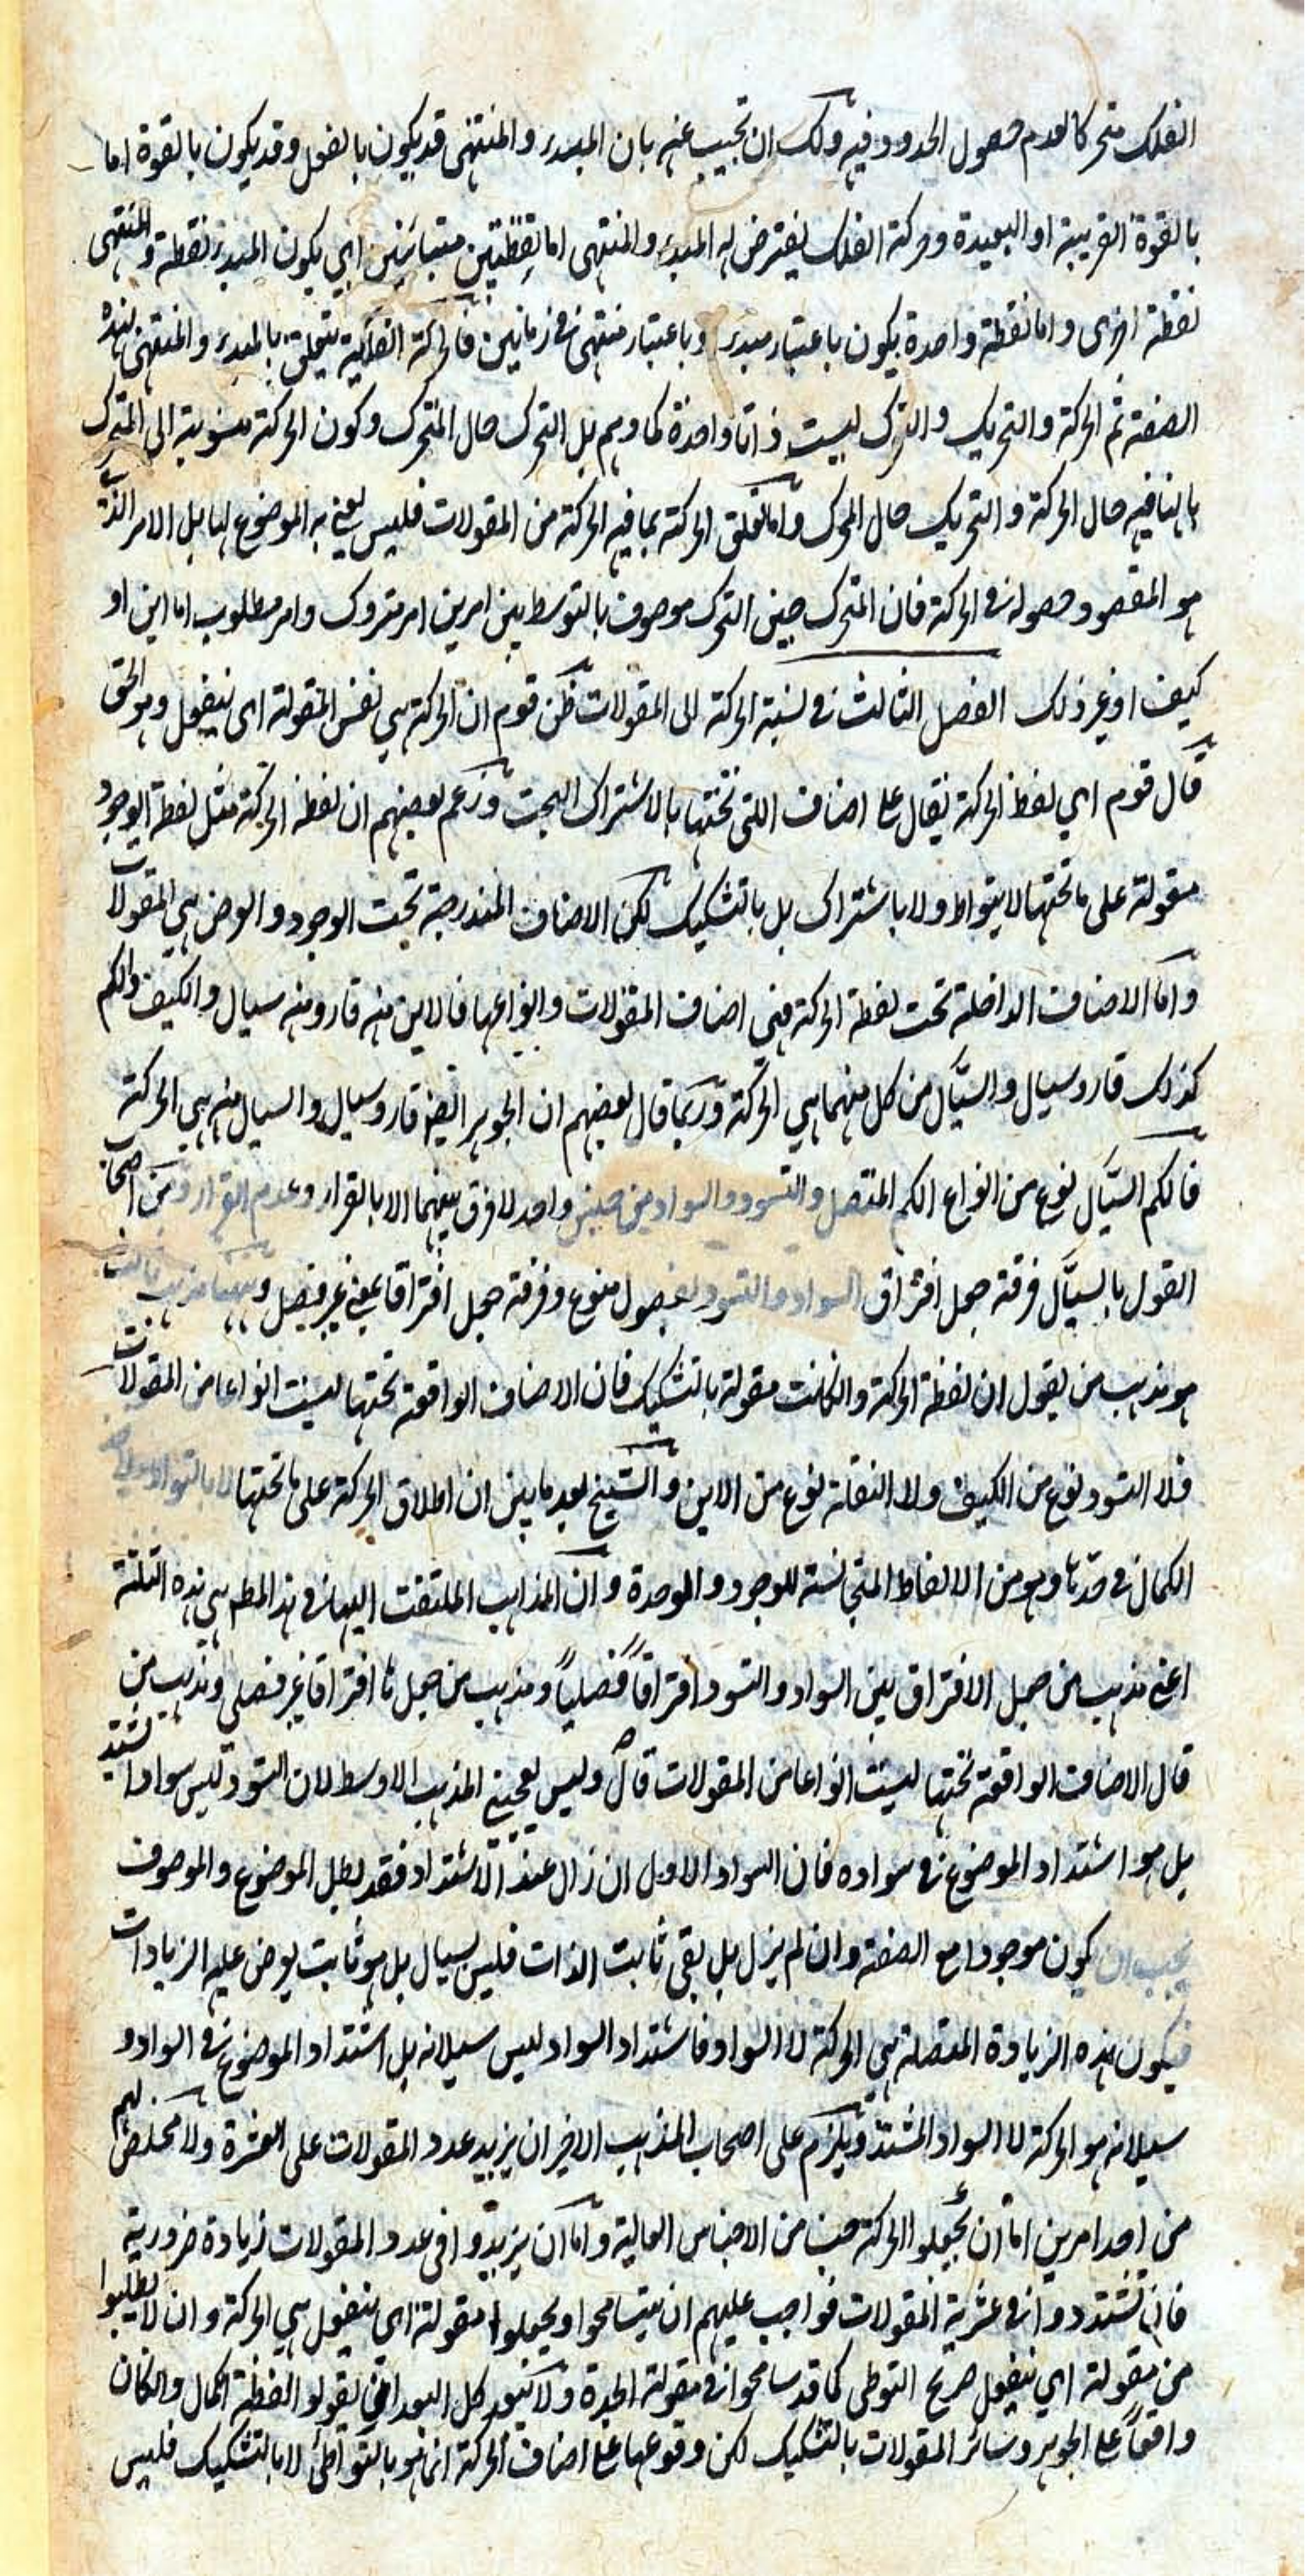 الفلك متحركا لعدم حصول الحدود فيه ولك ان تجيب عنه بان المبدء والمنتهى قد يكون بالفعل وقد يكون بالقوة اما
بالقوة القريبة او البعيدة وحركة الفلك يفترض له المبدء والمنتهى اما بنقطتين متباينين اي يكون المبدء نقطة والمنتهى
نقطة اخرى واما نقطة واحدة يكون باعتبار مبدء وباعتبار منتهى في زمانين فالحركة الفلكية يتعلق بالمبدء والمنتهى بهذه
الصفة ثم الحركة والتحريك والتحرك ليست ذاتا واحدة كما وهم بل التحرك حال المتحرك وكون الحركة منسوبة الى المتحرك
بانها فيه حال الحركة والتحريك حال المحرك واما تعلق الحركة بما فيه الحركة من المقولات فليس يعنى به الموضوع لها بل الامر الذي
هو المقصود حصوله في الحركة فان المتحرك حين التحرك موصوف بالتوسط بين امرين امر متروك وامر مطلوب اما اين او
كيف او غير ذلك الفصل الثالث في نسبة الحركة الى المقولات ظن قوم ان الحركة هي نفس المقولة اى ينفعل وهو الحق
قال قوم اي لفظ الحركة يقال على اصناف اللتى تحتها بالاشتراك البحت وزعم بعضهم ان لفظ الحركة مثل لفظة الوجود
مقولة على ما تحتها لا بتواط ولا باشتراك بل بالتشكيك لكن الاصناف المندرجة تحت الوجود والعرض هي المقولات
واما الاصناف الداخلة تحت لفظة الحركة فهى اصناف المقولات وانواعها فالاين منه قار ومنه سيال والكيف والكم
كذلك قار وسيال والسيال من كل منهما هي الحركة وربما قال بعضهم ان الجوهر ايضا قار وسيال والسيال منه هي الحركة
فالكم السيال نوع من انواع الكم المتصل والتسود والسواد من جنس واحد لا فرق بينهما الا بالقرار وعدم القرار ومن اصحاب
القول بالسيال فرقة جعل افتراق السواد والتسود بفصول منوع وفرقة جعل افتراقا بمعنى غير فصل وههنا مذهب ثالث
هو مذهب من يقول ان لفظة الحركة وان كانت مقولة بالتشكيك فان الاصناف الواقعة تحتها ليست انواعا من المقولات
فلا التسود نوع من الكيف ولا النقلة نوع من الاين والشيخ بعد ما بين ان اطلاق الحركة على ما تحتها لا بالتواطو
الكمال في حدها وهو من الالفاظ المتجانسة للوجود والوحدة وان المذاهب الملتفت اليها في هذا المطلب هي هذه الثلثة
اعنى مذهب من جعل الافتراق بين السواد والتسود افتراقا فصليا ومذهب من جعلها افتراقا غير فصلي ومذهب من
قال الاصناف الواقعة تحتها ليست انواعا من المقولات قال وليس يعجبنى المذهب الاوسط لان التسود ليس سوادا اشتد
بل هو اشتداد الموضوع في سواده فان السواد الاول ان زال عند الاشتداد فقد بطل الموضوع والموصوف
يجب ان يكون موجودا مع الصفة وان لم يزل بل بقى ثابت الذات فليس بسيال بل هو ثابت يعرض عليه الزيادات
فيكون هذه الزيادة المتصلة هي الحركة لا السواد فاشتداد السواد ليس سيلانه بل اشتداد الموضوع في السواد و
سيلانه هو الحركة لا السواد المشتد ويلزم على اصحاب المذهب الاخير ان يزيد عدد المقولات على العشرة ولا مخلص لهم
من احد امرين اما ان يجعلوا الحركة جنسا من الاجناس العالية واما ان يزيدوا فى عدد المقولات زيادة ضرورية
فان تشددوا في عشرية المقولات فواجب عليهم ان يتسامحوا ويجعلوا مقولة اى ينفعل هي الحركة وان لا يطلبوا
من مقولة اي ينفعل صريح التوطى كما قد سامحوا في مقولة الجدة ولا يبعد كل البعد ان يقولو لفظة الكمال وان كان
واقعا على الجوهر وسائر المقولات بالتشكيك لكن وقوعها على اصناف الحركة انما هو بالتواطئ لا بالتشكيك فليس